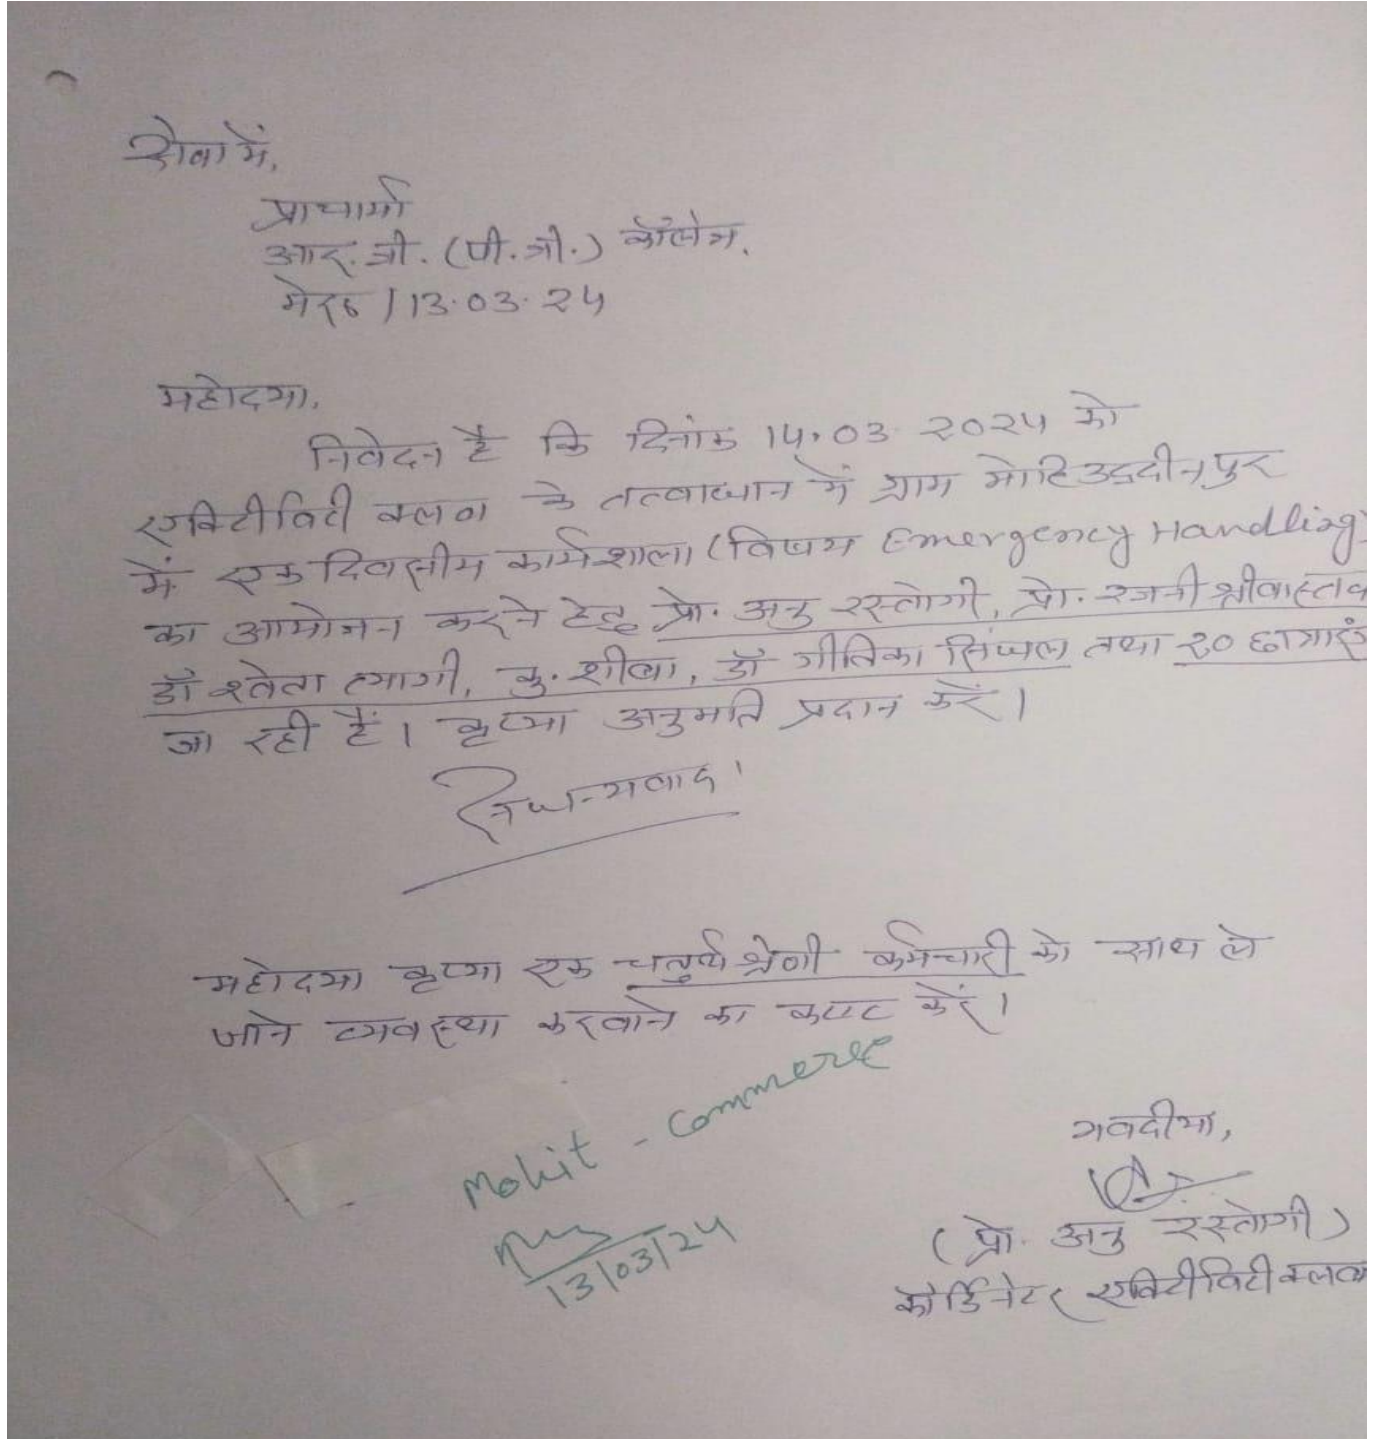 सेवा में,
प्राचार्या
आर.जी. (पी.जी.) कॉलेज,
मेरठ / 13.03.24
महोदया,
निवेदन है कि दिनांक 14.03.2024 को
एक्टिीविटी क्लब के तत्वाधान में ग्राम मोहिउद्दीनपुर
में एक दिवसीय कार्यशाला (विषय Emergency Handling)
का आयोजन करने हेतु प्रो. अनु रस्तोगी, प्रो. रजनी श्रीवास्तव
डॉ श्वेता त्यागी, कु. शीबा, डॉ गीतिका सिंघल तथा २० छात्राएं
जा रही हैं। कृप्या अनुमति प्रदान करें।
सधन्यवाद।
महोदया कृप्या एक चतुर्थ श्रेणी कर्मचारी को साथ ले
जाने व्यवस्था करवाने का कष्ट करें।
Mohit - Commerce
13/03/24
भवदीया,
(प्रो. अनु रस्तोगी)
कोर्डिनेटर एक्टिीविटी क्लब